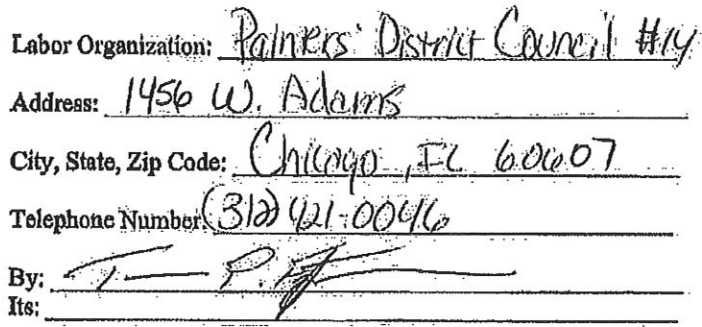 Labor Organization: Painters' District Council #14
Address: 1456 W. Adams
City, State, Zip Code: Chicago, IL 60607
Telephone Number: (312) 421-0046
By:
Its: